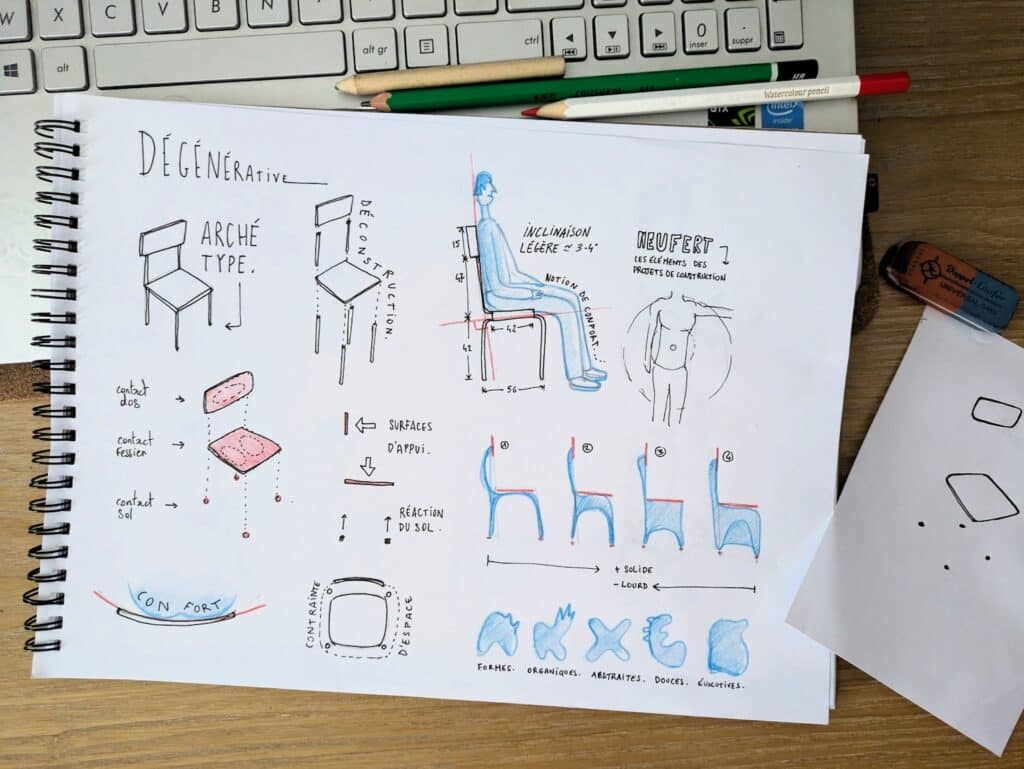 W
X
C
V
B
N
alt
alt gr
ctrl
0
inser
.
suppr
Watercolour pencil
GTX
intel
inside
DÉGÉNÉRATIVE
ARCHÉ
TYPE.
DÉCONSTRUCTION.
INCLINAISON
LÉGÈRE ≃ 3-4°
NOTION DE CONFORT....
15
47
42
42
56
NEUFERT
LES ÉLÉMENTS DES
PROJETS DE CONSTRUCTION
contact
dos
contact
fessier
contact
sol
SURFACES
D'APPUI.
RÉACTION
DU SOL.
1
2
3
4
+ SOLIDE
- LOURD
CONFORT
CONTRAINTE
D'ESPACE
FORMES. ORGANIQUES. ABSTRAITES. DOUCES. ÉVOCATIVES.
UNIVERSAL